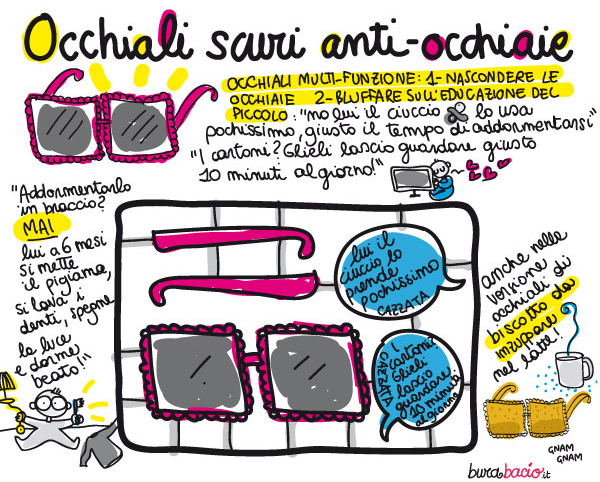 Occhiali scuri anti-occhiaie
OCCHIALI MULTI-FUNZIONE: 1- NASCONDERE LE
OCCHIAIE 2- BLUFFARE SULL'EDUCAZIONE DEL
PICCOLO: "no lui il ciuccio lo usa
pochissimo, giusto il tempo di addormentarsi"
"I cartoni? Glieli lascio guardare giusto
10 minuti al giorno!"
"Addormentarlo
in braccio?
MAI
lui a 6 mesi
si mette
il pigiama,
si lava i
denti, spegne
la luce
e dorme
beato!"
lui il
ciuccio lo
prende
pochissimo
CAZZATA
I
cartoni?
Glieli
lascio
guardare
10 minuti
al giorno
CAZZATA
anche nella
versione
occhiali di
biscotto da
inzuppare
nel latte!
GNAM
GNAM
burabacio.it